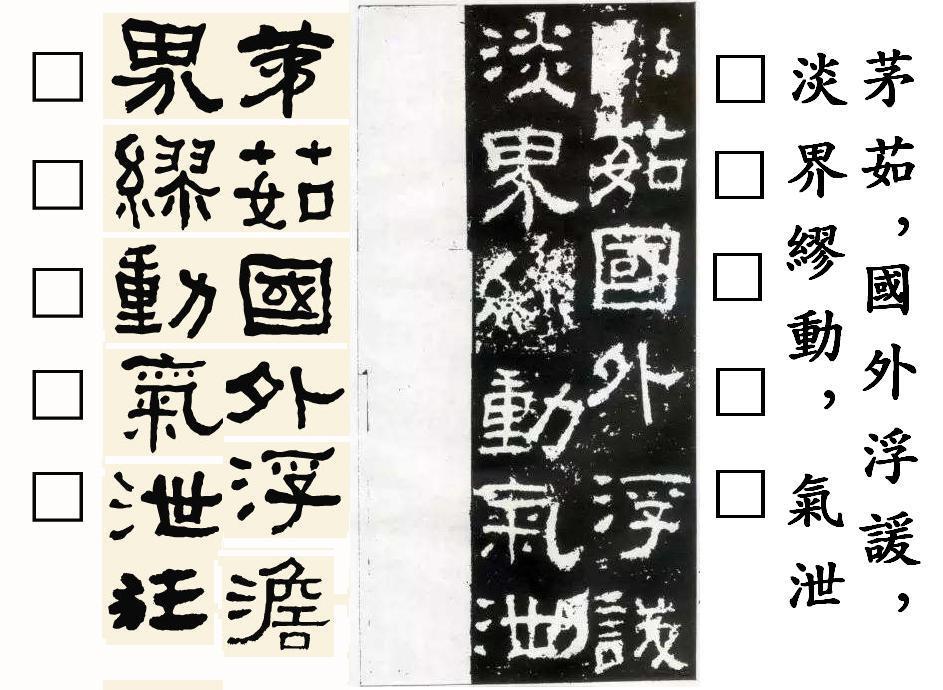 茅茹，國外浮諼，
淡界繆動，氣泄
茹國外浮
淡界繆動氣泄
茅茹國外浮澹
界繆動氣泄